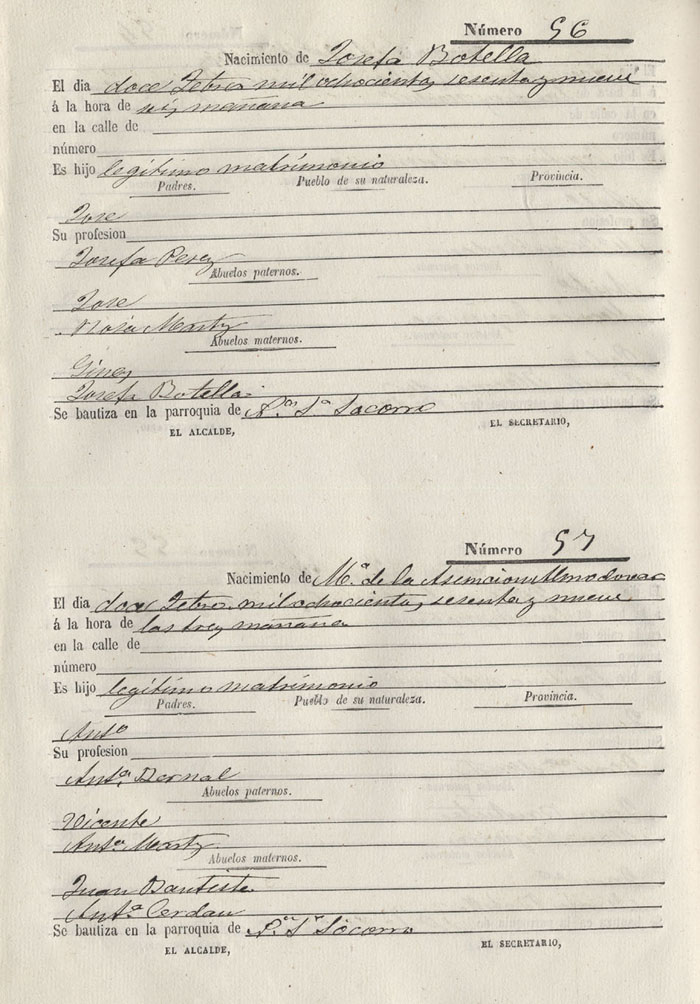 Número 56
Nacimiento de Josefa Botella
El dia doce Febro mil ochocientos sesenta y nueve
á la hora de seis mañana
en la calle de
número
Es hijo legítimo matrimonio
Padres. Pueblo de su naturaleza. Provincia.
Jose
Su profesion
Josefa Perez
Abuelos paternos.
Jose
Maria Martz
Abuelos maternos.
Gines
Josefa Botella
Se bautiza en la parroquia de Nª Sª Socorro
EL ALCALDE, EL SECRETARIO,
Número 57
Nacimiento de M.ª de la Asencion Almodovar
El dia doce Febro mil ochocientos sesenta y nueve
á la hora de las tres mañana
en la calle de
número
Es hijo legítimo matrimonio
Padres. Pueblo de su naturaleza. Provincia.
Anto
Su profesion
Antª Bernal
Abuelos paternos.
Vicente
Antª Martz
Abuelos maternos.
Juan Bautista
Antª Cerdan
Se bautiza en la parroquia de Sª Socorro
EL ALCALDE, EL SECRETARIO,